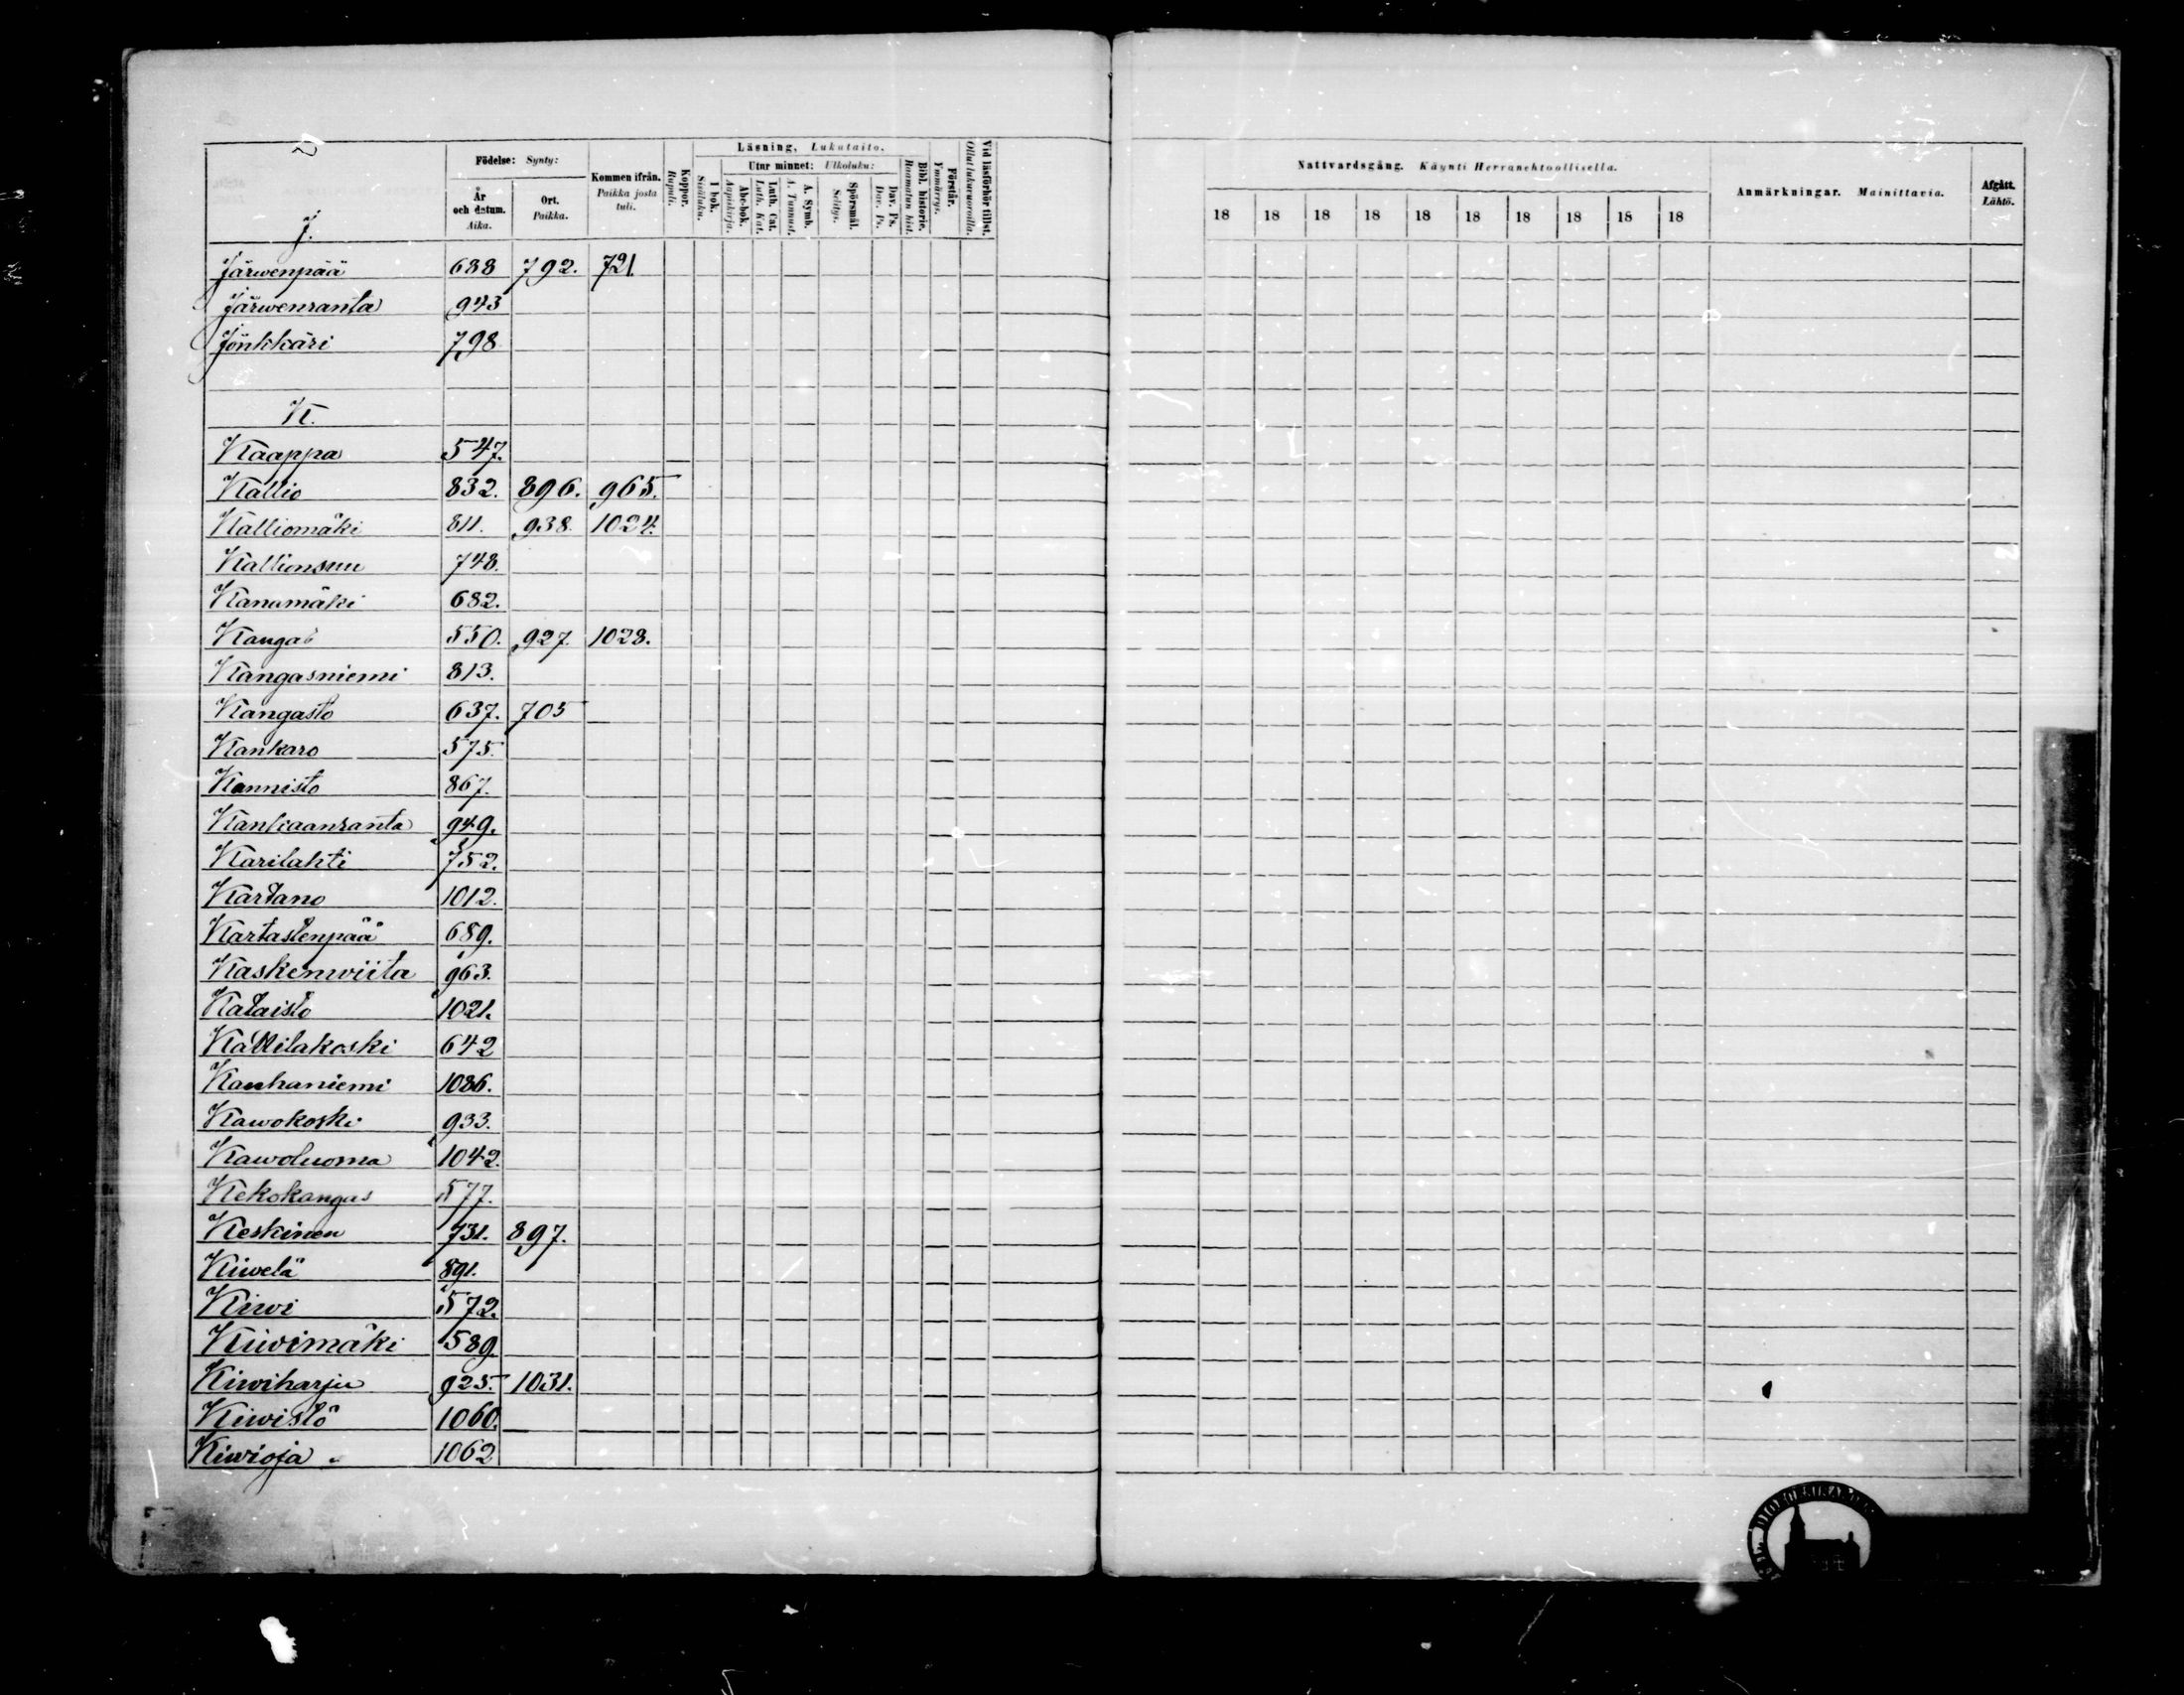 Läsning. Lukutaito.
Födelse: Synty:
Utur minnet: Ulkoluku:
Kommen ifrån.
Paikka josta tuli.
År och datum.
Aika.
Ort.
Paikka.
Koppor.
Rupuli.
I bok.
Sisäluku.
Abc-bok.
Aapiskirja.
Luth. Cat.
Luth. Kat.
A. Symb.
A. Tunnust.
Spörsmål.
Selitys.
Dav. Ps.
Dav. Ps.
Bibl. historie.
Raamatun hist.
Förstår.
Ymmärrys.
Vid läsförhör tillst.
Ollut lukuvuoroilla.
J.
Järwenpää 688 792. 721.
Järwenranta 943
Jönkkäri 798
K.
Kaappa 547.
Kallio 832. 896. 965.
Kalliomäki 811. 938. 1024.
Kallionsuu 748.
Kanamäki 682.
Kangas 550. 927. 1028.
Kangasniemi 813.
Kangasto 637. 705
Kankaro 575.
Kannisto 867.
Kankaanranta 949.
Karilahti 752.
Kartano 1012.
Kartastenpää 689.
Kaskenwiita 963.
Kataisto 1021.
Kattilakoski 642
Kauhaniemi 1086.
Kawokoski 933.
Kawoluoma 1042.
Kekokangas 577.
Keskinen 731. 897.
Kiwelä 891.
Kiwi 572.
Kiwimäki 589.
Kiwiharju 925. 1031.
Kiwistö 1060.
Kiwioja 1062
Nattvardsgång. Käynti Herranehtoollisella.
Anmärkningar. Mainittavia.
Afgått.
Lähtö.
18 18 18 18 18 18 18 18 18 18